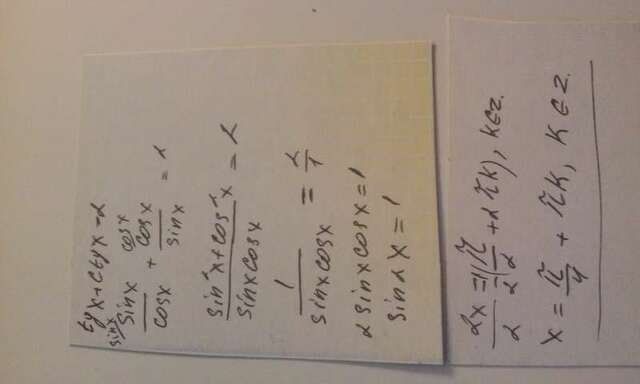 tgx + ctgx = 2
sinx/ sinx/cosx + cosx/ cosx/sinx = 2
(sin²x + cos²x)/(sinxcosx) = 2
1/(sinxcosx) = 2/1
2sinxcosx = 1
sin2x = 1
2x/2 = 1/2(π/2 + 2πk), k∈z.
x = π/4 + πk, k∈z.